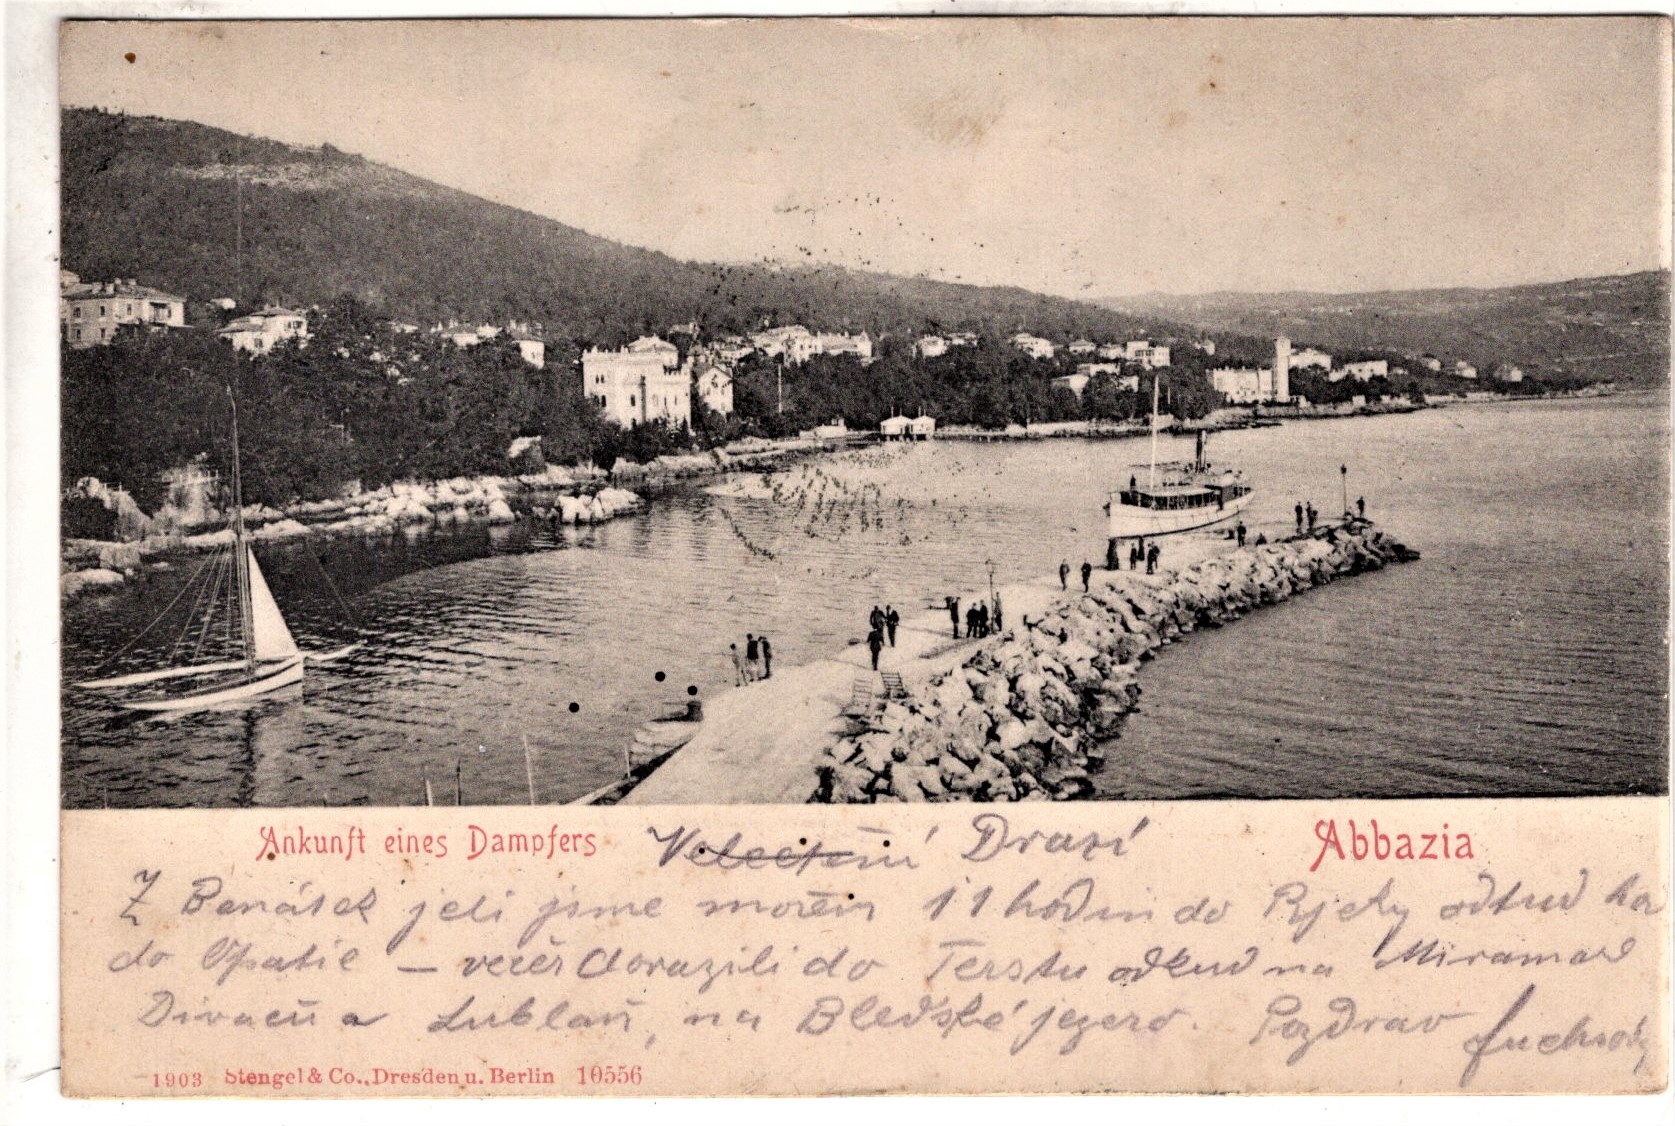 Ankunft eines Dampfers
Abbazia
Velectění Drazí
Z Benátek jeli jsme mořem 11 hodin do Rjeky odtud
do Opatie — večer dorazili do Terstu odkud na Miramare
Divaču a Lublaň, na Bledské jezero. Pozdrav
1903 Stengel & Co., Dresden u. Berlin 10556